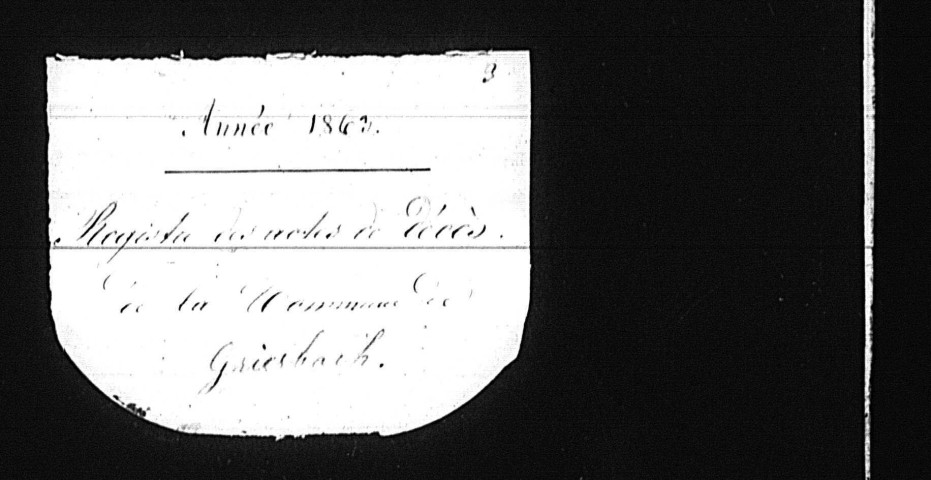 3
Année 1863.
Registre des actes de Décès.
de la Commune de
Griesbach.